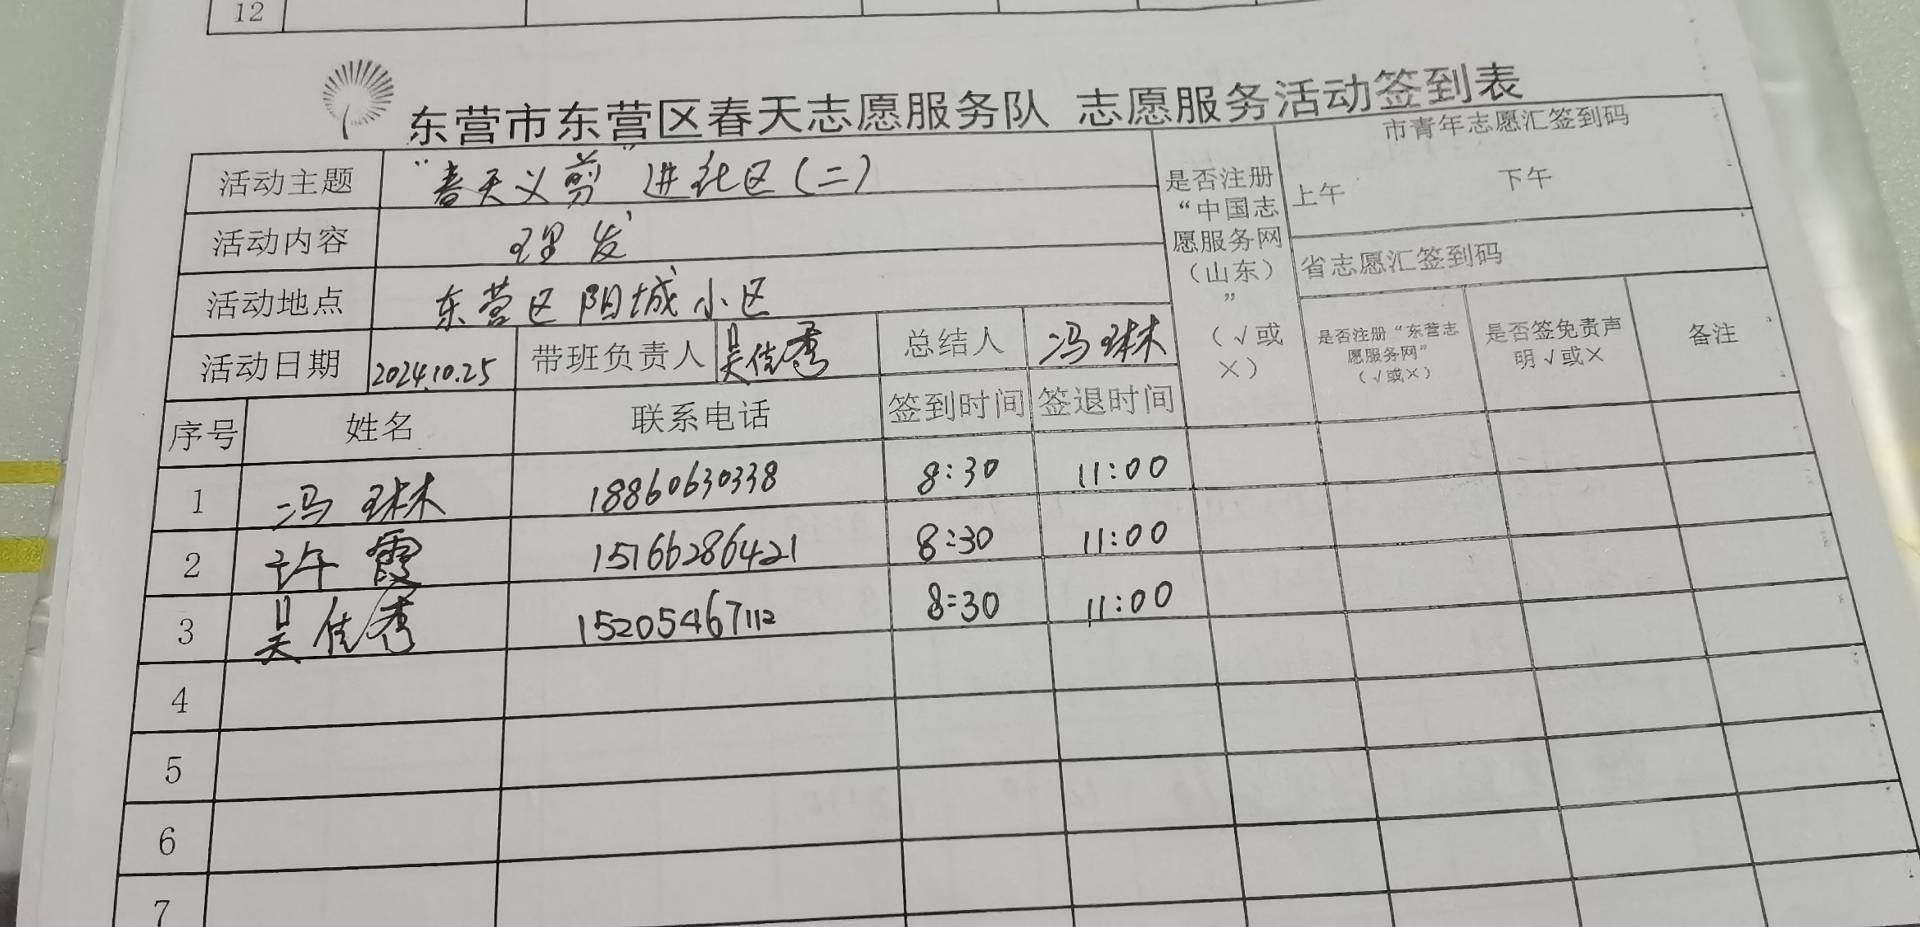 12
东营市东营区春天志愿服务队 志愿服务活动签到表
活动主题 “春天义剪”进社区(二) 是否注册“中国志愿服务网（山东）”（√或×） 市青年志愿汇签到码
上午 下午
活动内容 理发
省志愿汇签到码
活动地点 东营区阳城小区
活动日期 2024.10.25 带班负责人 吴佳秀 总结人 冯琳 是否注册“东营志愿服务网”（√或×） 是否签免责声明√或× 备注
序号 姓名 联系电话 签到时间 签退时间
1 冯琳 18860630338 8:30 11:00
2 许霞 15166286421 8:30 11:00
3 吴佳秀 15205467112 8:30 11:00
4
5
6
7